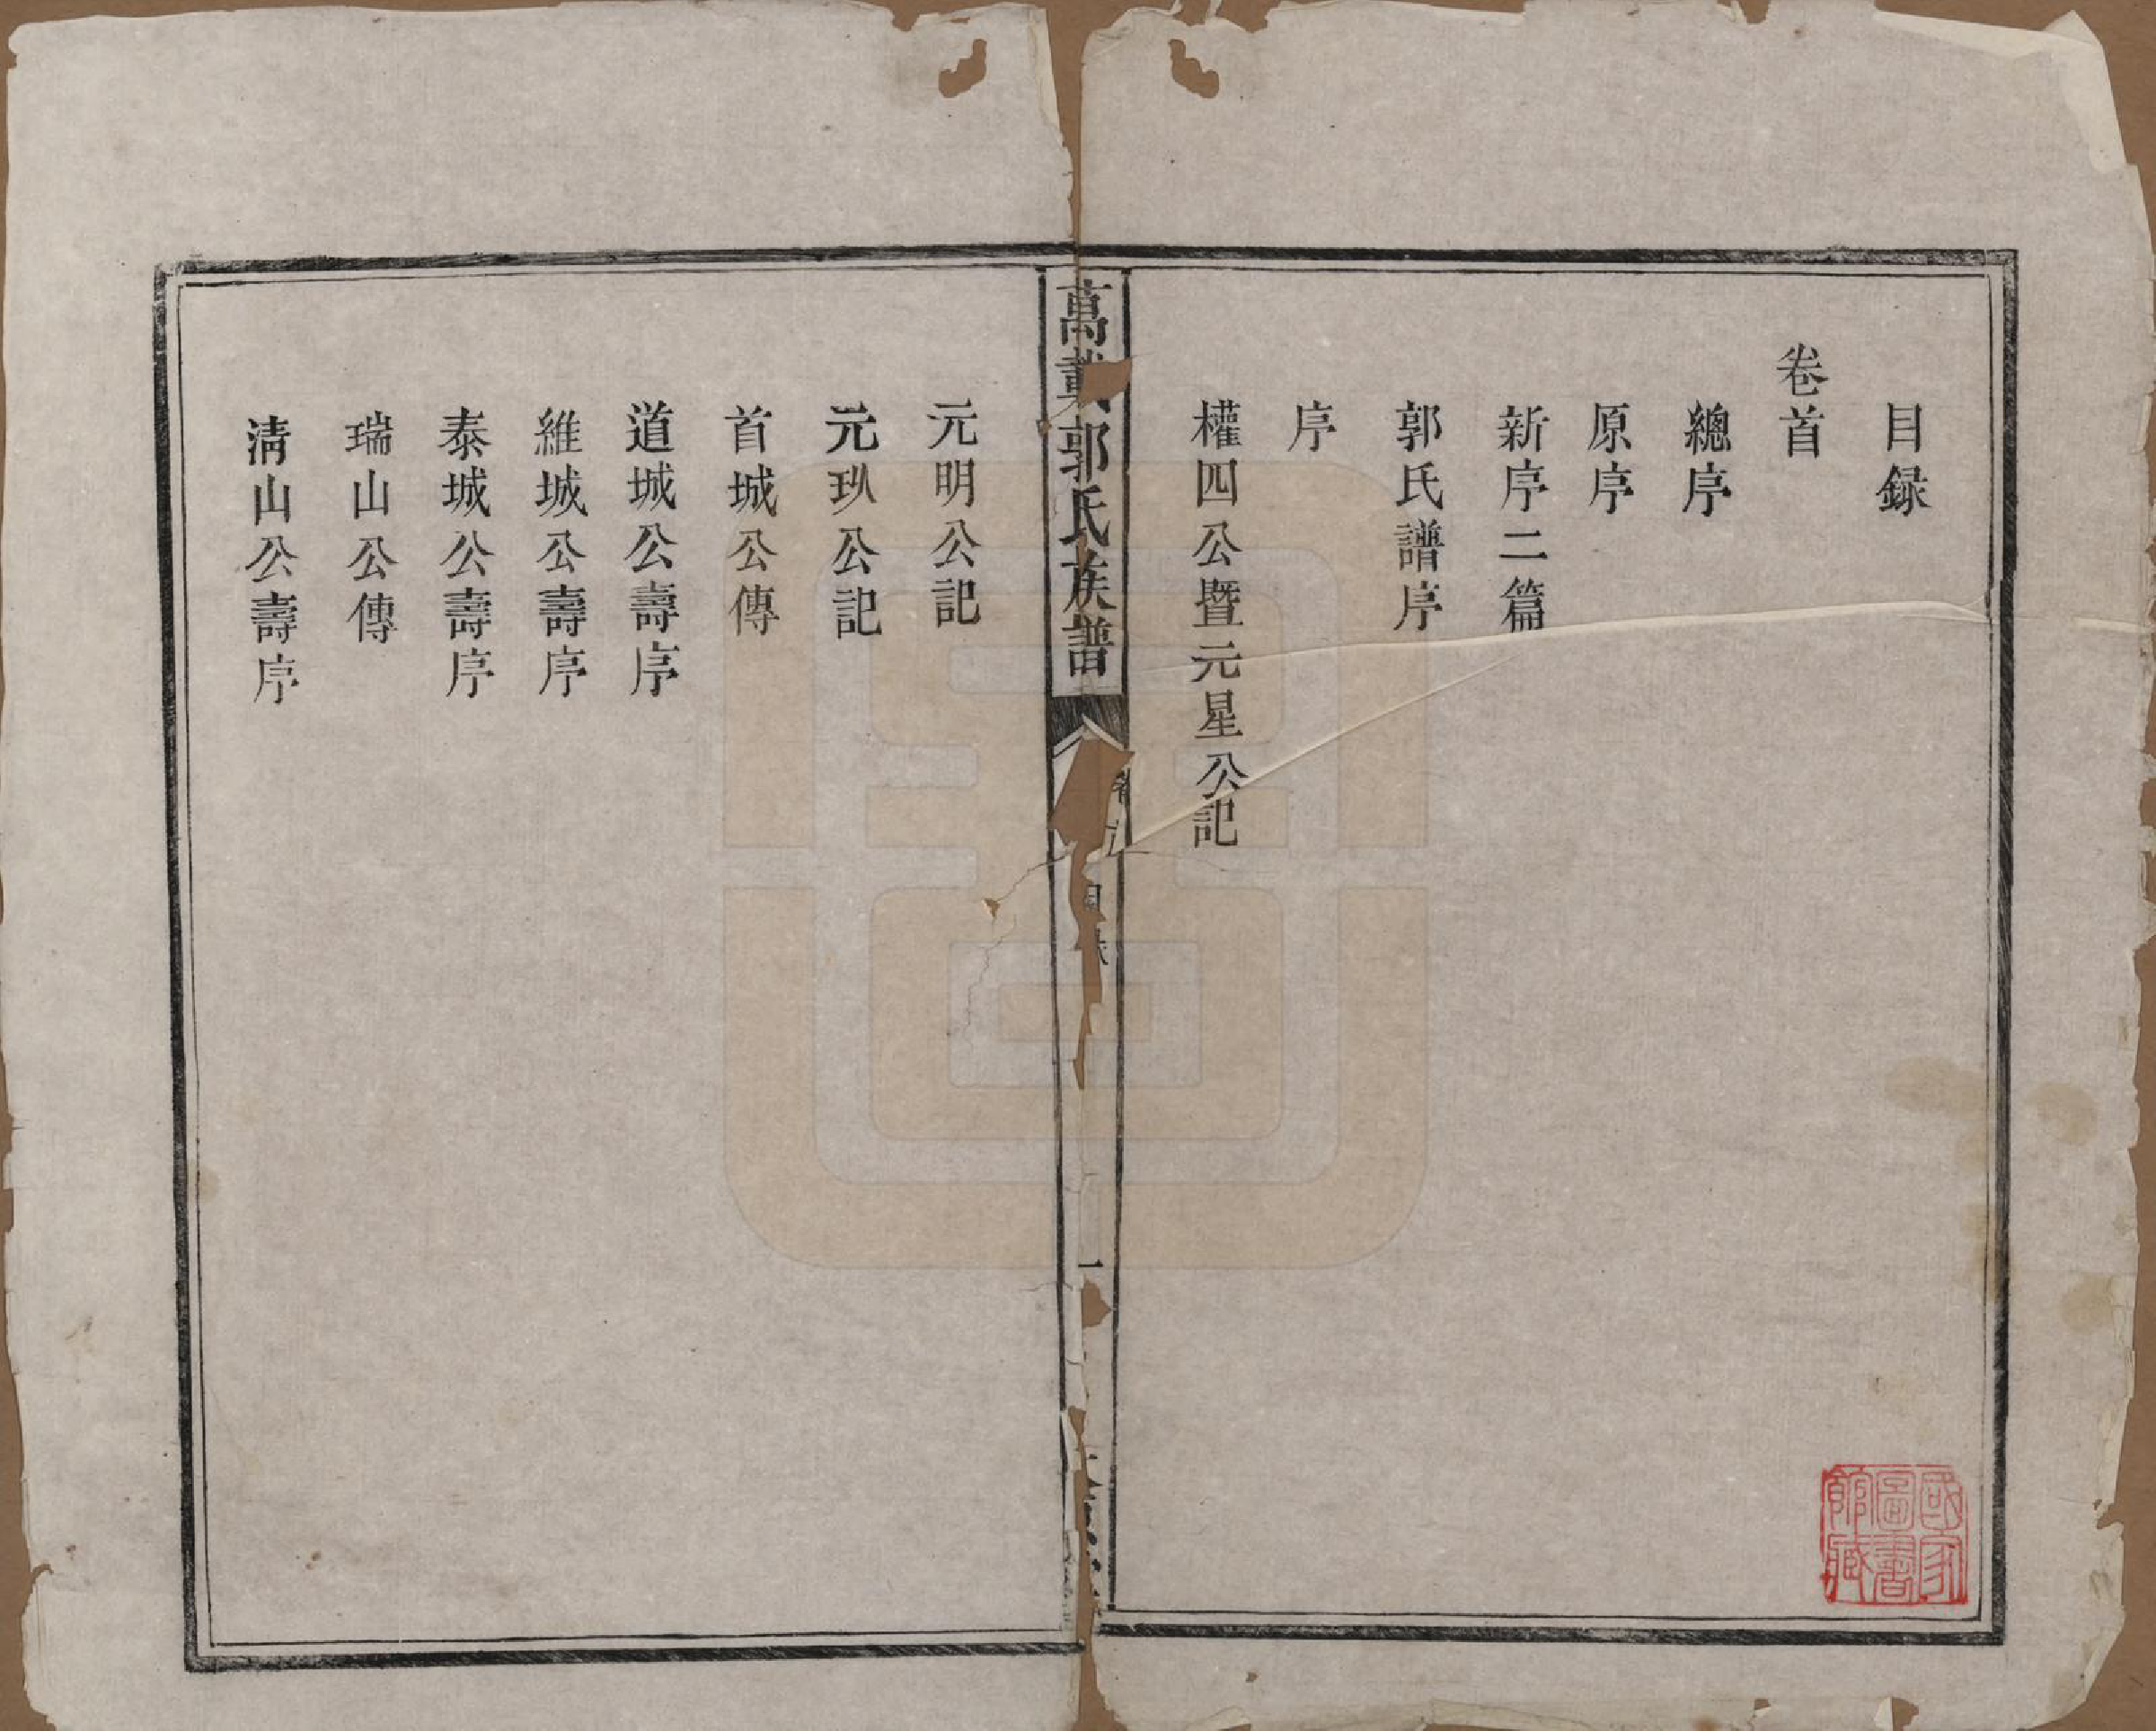 目録
卷首
總序
原序
新序二篇
郭氏譜序
序
權四公暨元星公記
萬載郭氏族譜
目録
一
元明公記
元玖公記
首城公傳
道城公壽序
維城公壽序
泰城公壽序
瑞山公傳
清山公壽序
國家圖書館藏